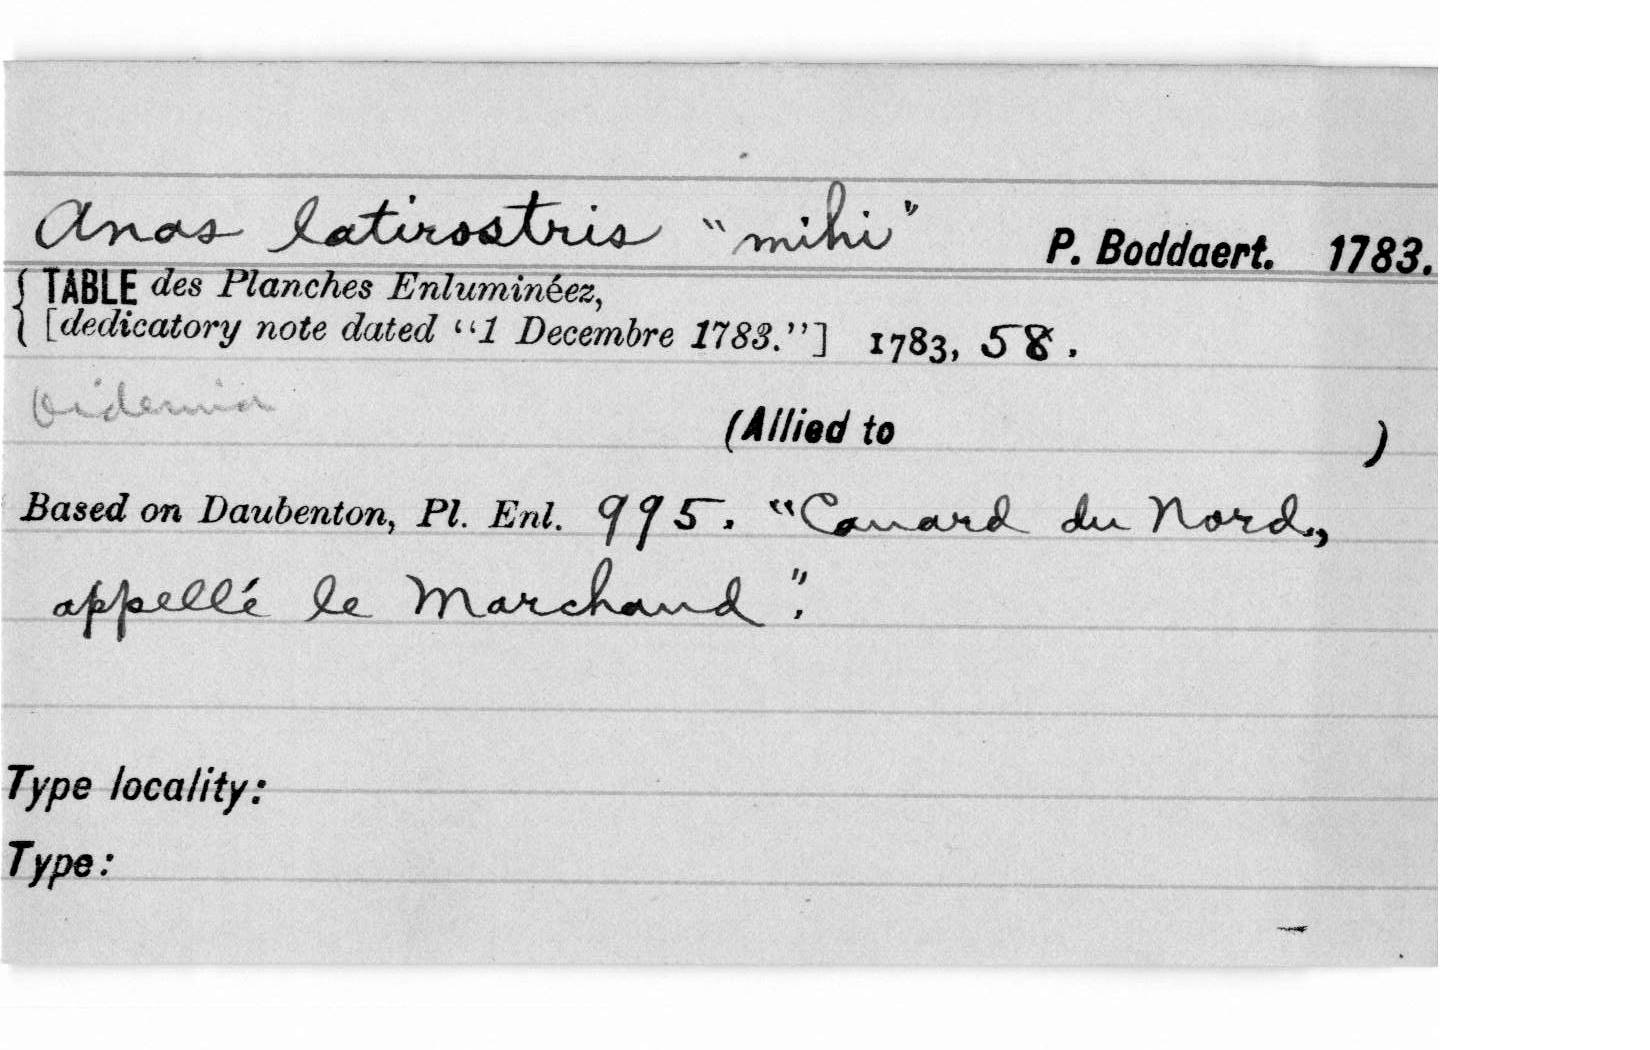 Anas latirostris "mihi" P. Boddaert. 1783.
TABLE des Planches Enluminéez,
[dedicatory note dated "1 Decembre 1783."] 1783, 58.
Oidemia
(Allied to )
Based on Daubenton, Pl. Enl. 995. "Canard du Nord,
appellé le Marchand".
Type locality:
Type: